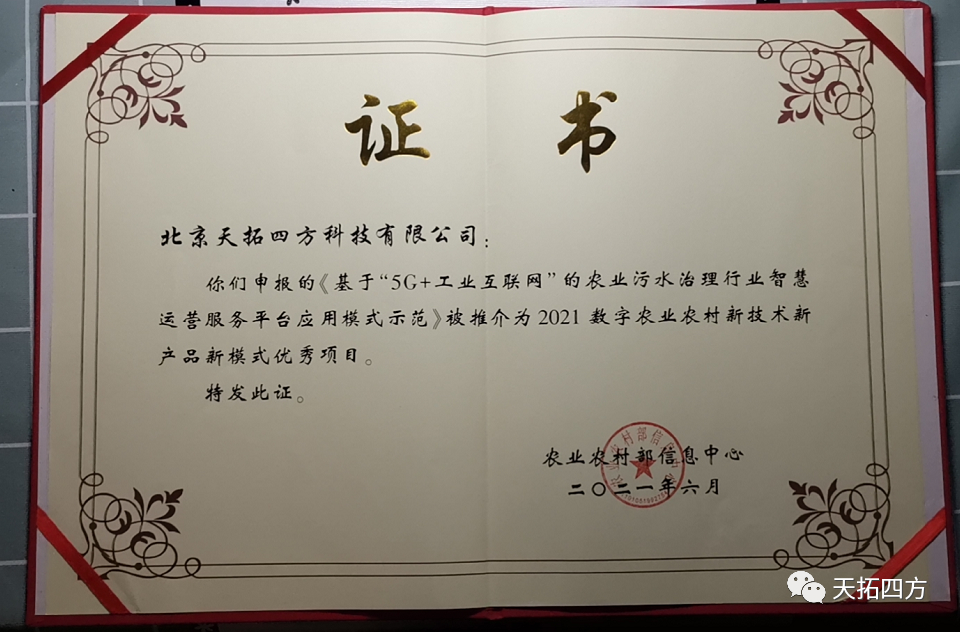 证书
北京天拓四方科技有限公司：
你们申报的《基于“5G+工业互联网”的农业污水治理行业智慧
运营服务平台应用模式示范》被推介为2021数字农业农村新技术新
产品新模式优秀项目。
特发此证。
农业农村部信息中心
二〇二一年六月
天拓四方